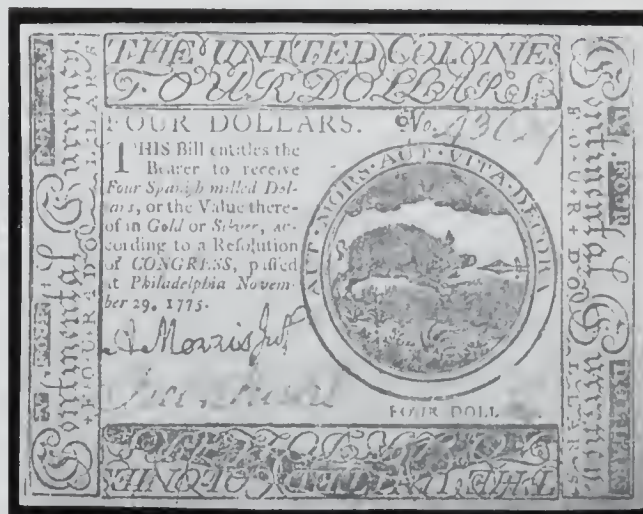 THE UNITED COLONIE
FOUR DOLLARS
FOUR DOLLARS.
No.
THIS Bill entitles the
Bearer to receive
Four Spanish milled Dol-
ars, or the Value there-
of in Gold or Silver, ac-
cording to a Resolution
of CONGRESS, passed
at Philadelphia Novem-
ber 29, 1775.
AUT · MORS · AUT · VITA · DECORA
A Morris Jur
FOUR DOLL
Continental Currency
FOUR DOLLARS
Continental Currency
FOUR DOLLARS
THE UNITED COLONIE